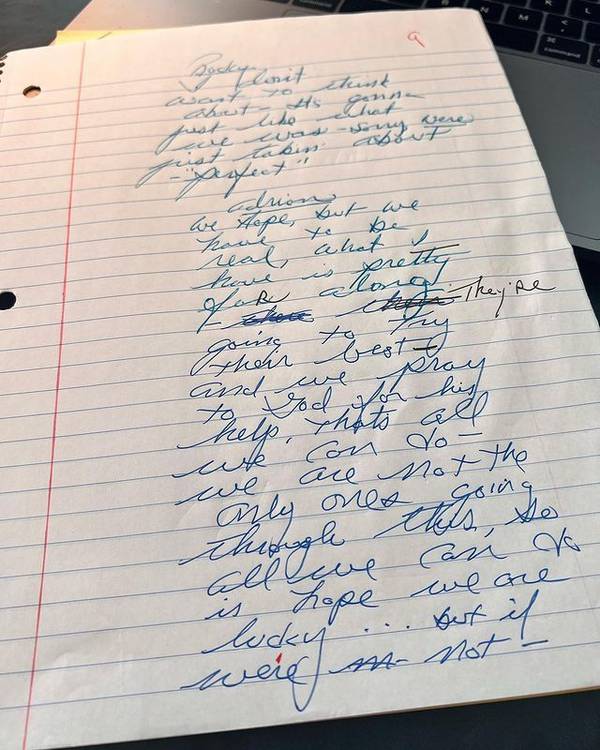 9
Rocky
I don't
want to think
about - its gonna
just like what
we was - sorry were
just takin about
- "perfect"
adrian
we hope, but we
have to be
real, what I
have is pretty
far along
- They're
going to try
their best -
and we pray
to God for his
help, thats all
we can do -
we are not the
only ones going
through this, so
all we can do
is hope we are
lucky ... but if
were not -